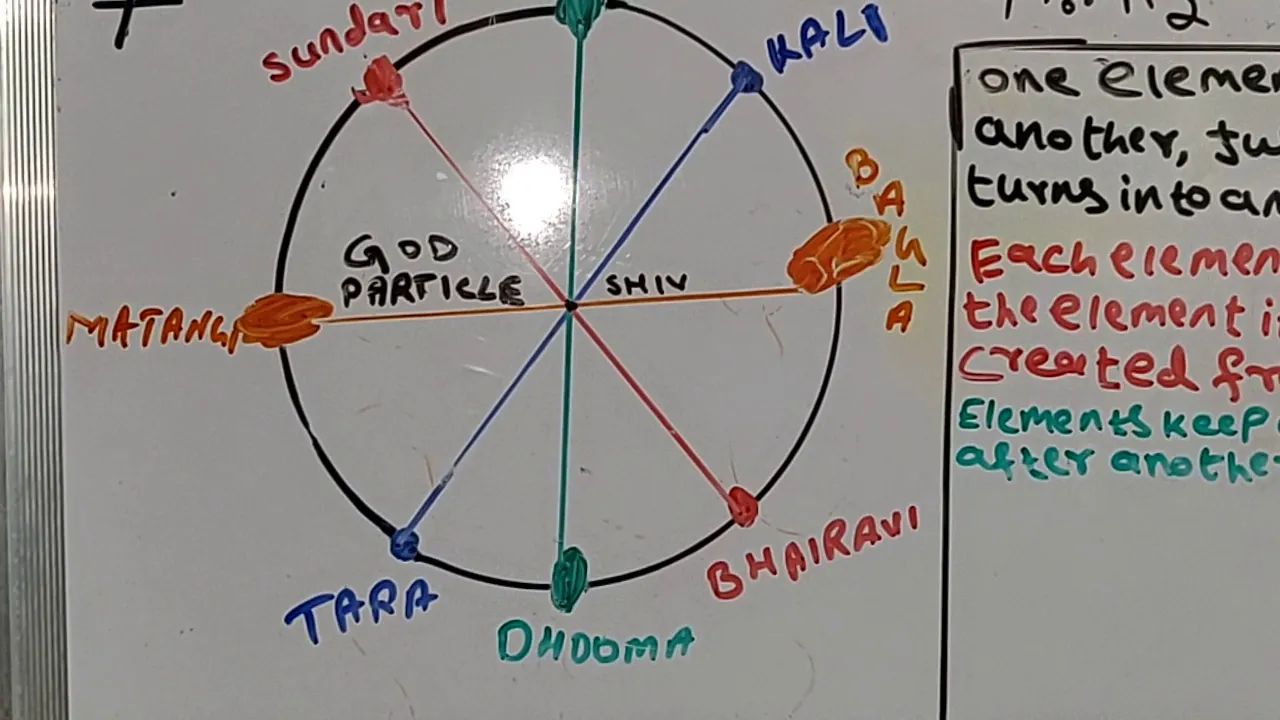 sundari
KALI
BAGLA
GOD
PARTICLE
SHIV
MATANGI
TARA
DHOOMA
BHAIRAVI
one elemen
another, fu
turns into an
Each elemen
the element i
created fr
Elements keep
after anothe